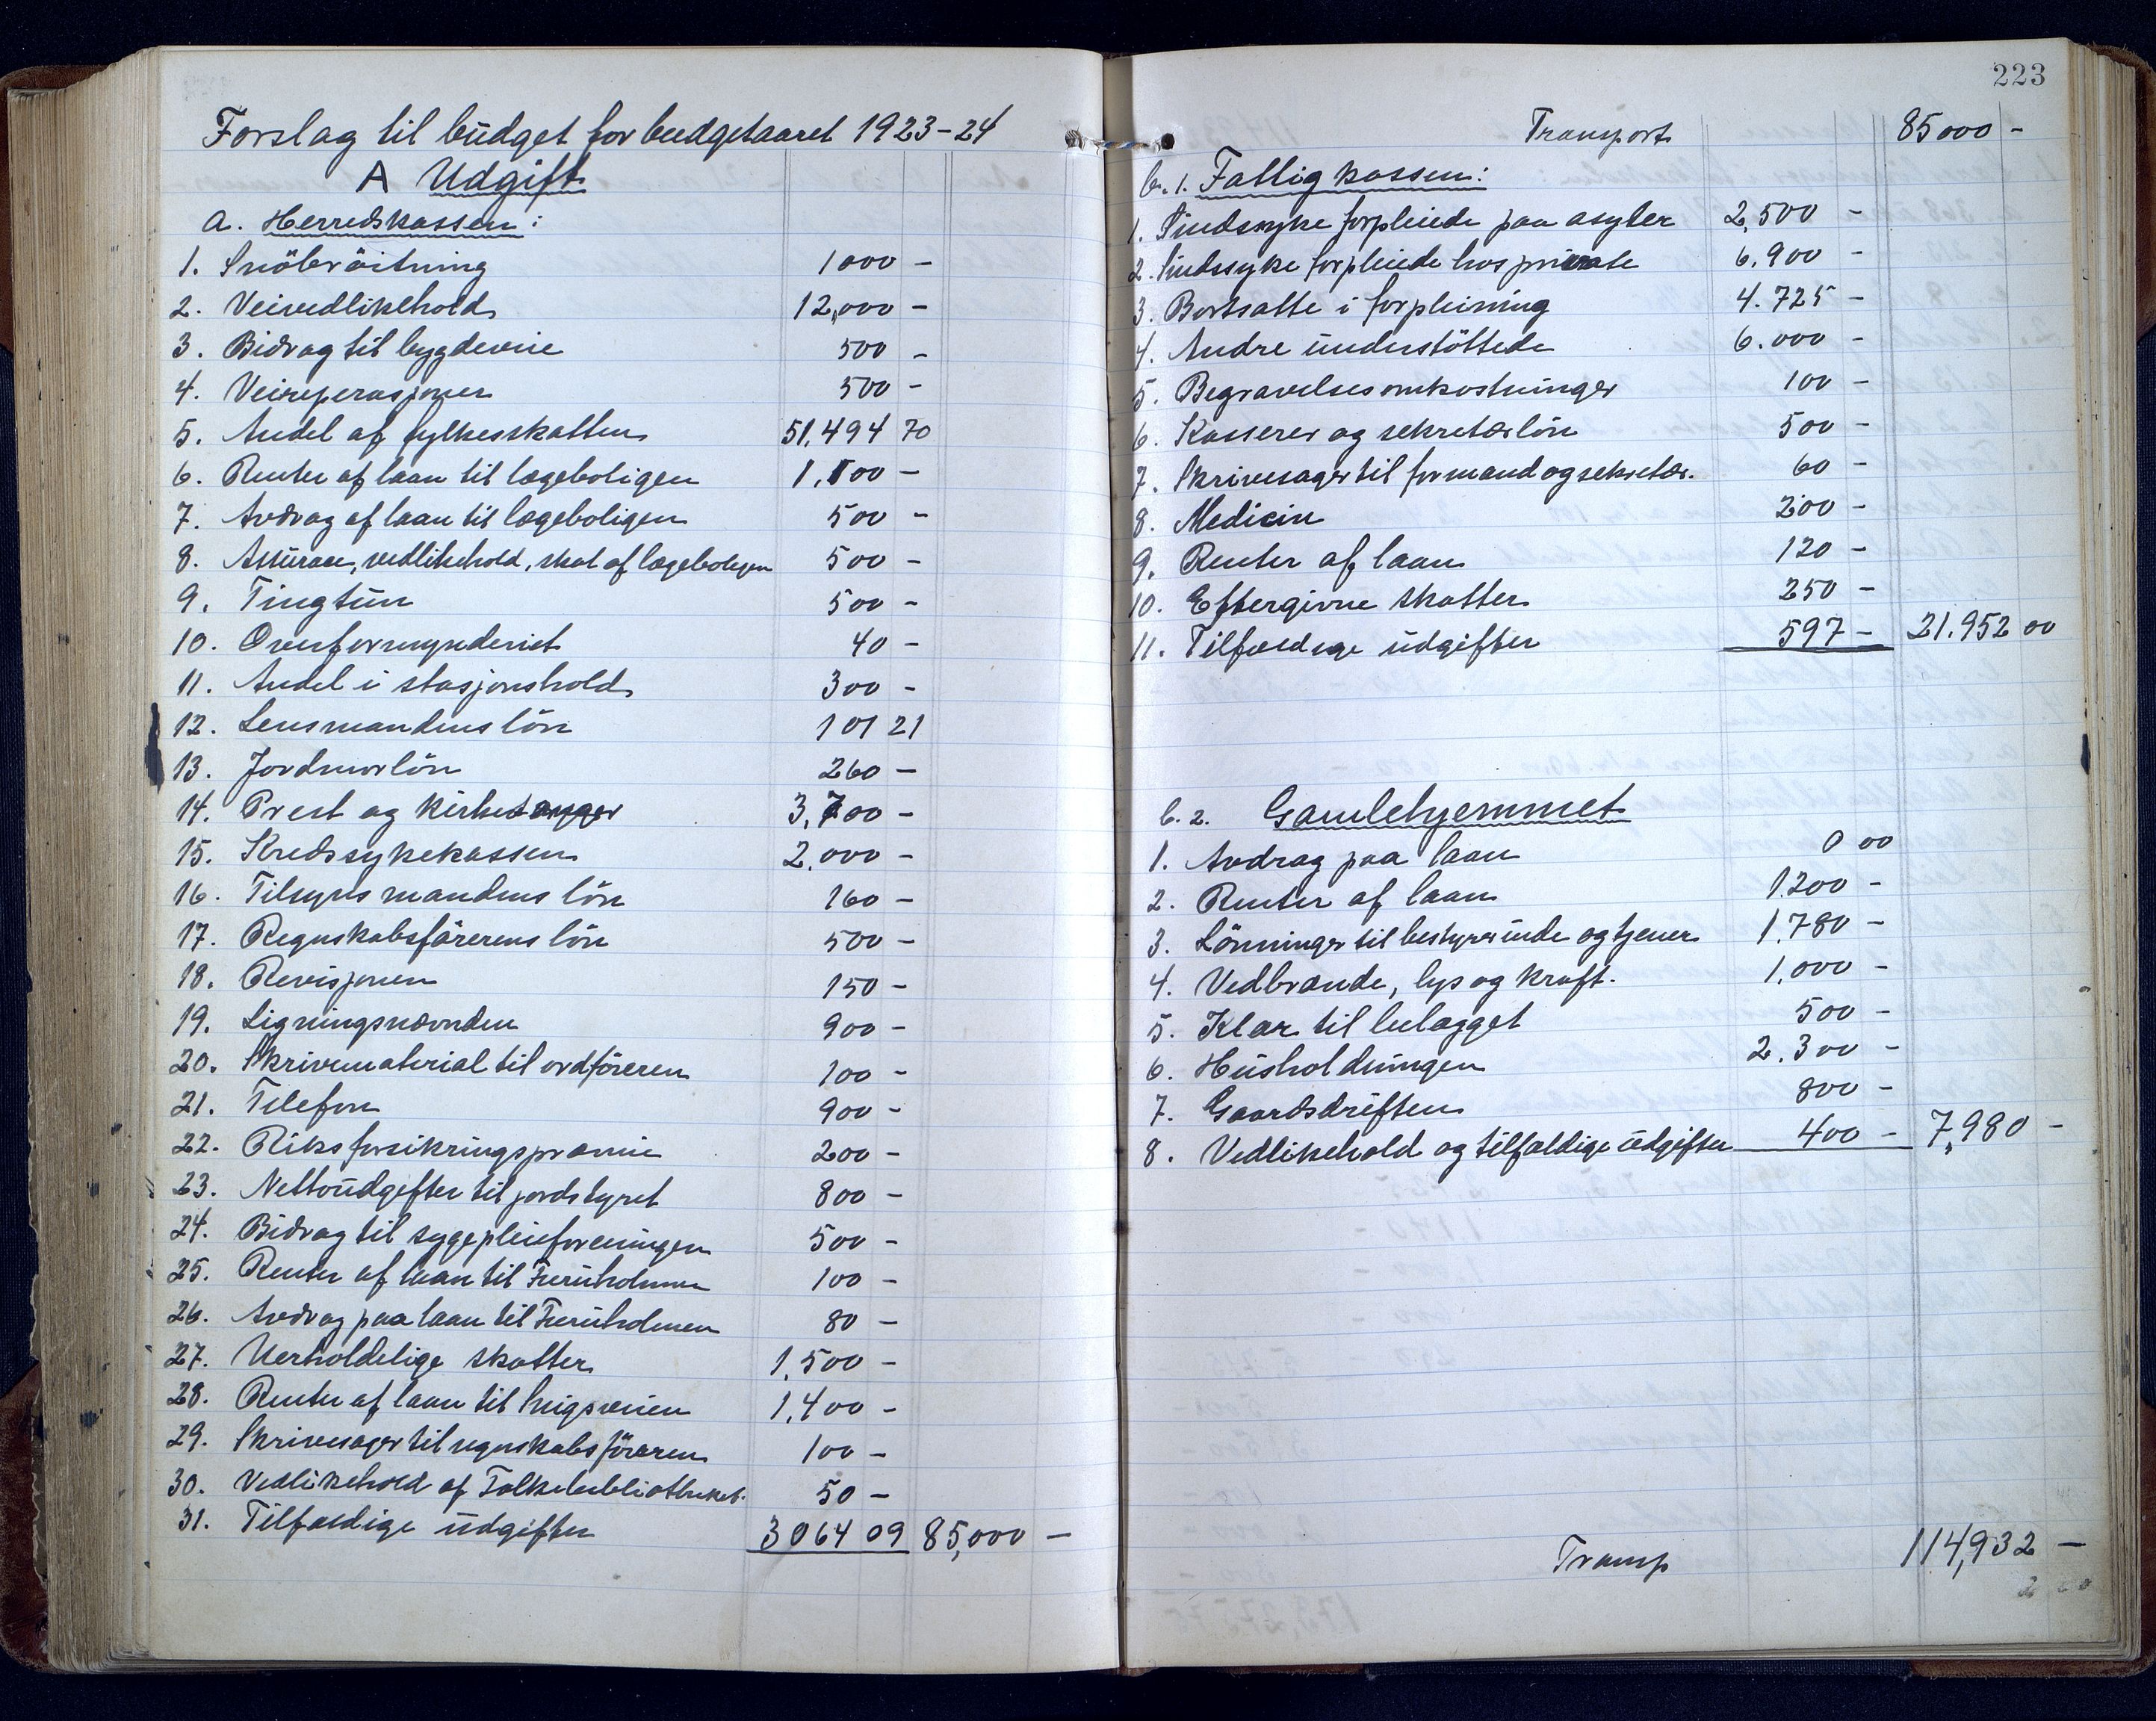 Forslag til budget for budgetaaret 1923-24
A Udgift
a. Herredskassen:
1. Snöbröitning 1000 -
2. Veivedlikehold 12,000 -
3. Bidrag til bygdeveie 500 -
4. Veireperasjoner 500 -
5. Andel af fylkesskatten 51,494 70
6. Renter af laan til lægeboligen 1,100 -
7. Avdrag af laan til lægeboligen 500 -
8. Assurace, vedlikehold, skat af lægeboligen 500 -
9. Tingtun 500 -
10. Overformynderiet 40 -
11. Andel i stasjonshold 300 -
12. Lensmandens lön 101 21
13. Jordmorlön 260 -
14. Prest og kirkesanger 3,700 -
15. Kredssykekassen 2,000 -
16. Tilsynsmandens lön 160 -
17. Regnskabsförerens lön 500 -
18. Revisjonen 150 -
19. Ligningsnævnden 900 -
20. Skrivematerial til ordföreren 100 -
21. Telefon 900 -
22. Riksforsikringspræmie 200 -
23. Nettoudgifter til jordstyret 800 -
24. Bidrag til sygepleieforeningen 500 -
25. Renter af laan til Furuholmen 100 -
26. Avdrag paa laan til Furuholmen 80 -
27. Uerholdelige skatter 1,500 -
28. Renter af laan til 1,400 -
29. Skrivesager til regnskabsföreren 100 -
30. Vedlikehold af Folkebibliotheket. 50 -
31. Tilfældige udgifter 3064 09 85,000 -
223
Transport 85000 -
b. 1. Fattigkassen:
1. Sindssyke forpleiede paa asyler 2,500 -
2. Sindssyke forpleiede hos private 6.900 -
3. Bortsatte i forpleining 4.725 -
4. Andre understöttede 6.000 -
5. Begravelsesomkostninger 100 -
6. Kasserer og sekretærlön 500 -
7. Skrivesager til formand og sekretær. 60 -
8. Medicin 200 -
9. Renter af laan 120 -
10. Eftergivne skatter 250 -
11. Tilfældige udgifter 597 - 21.952 00
b. 2. Gamlehjemmet
1. Avdrag paa laan 0 00
2. Renter af laan 1.200 -
3. Lönninger til bestyrerinde og tjener 1.780 -
4. Vedbrænde, lys og kraft. 1,000 -
5. Klær til belægget 500 -
6. Husholdningen 2.300 -
7. Gaardsdriften 800 -
8. Vedlikehold og tilfældige udgifter 400 - 7,980 -
Transp 114,932 -